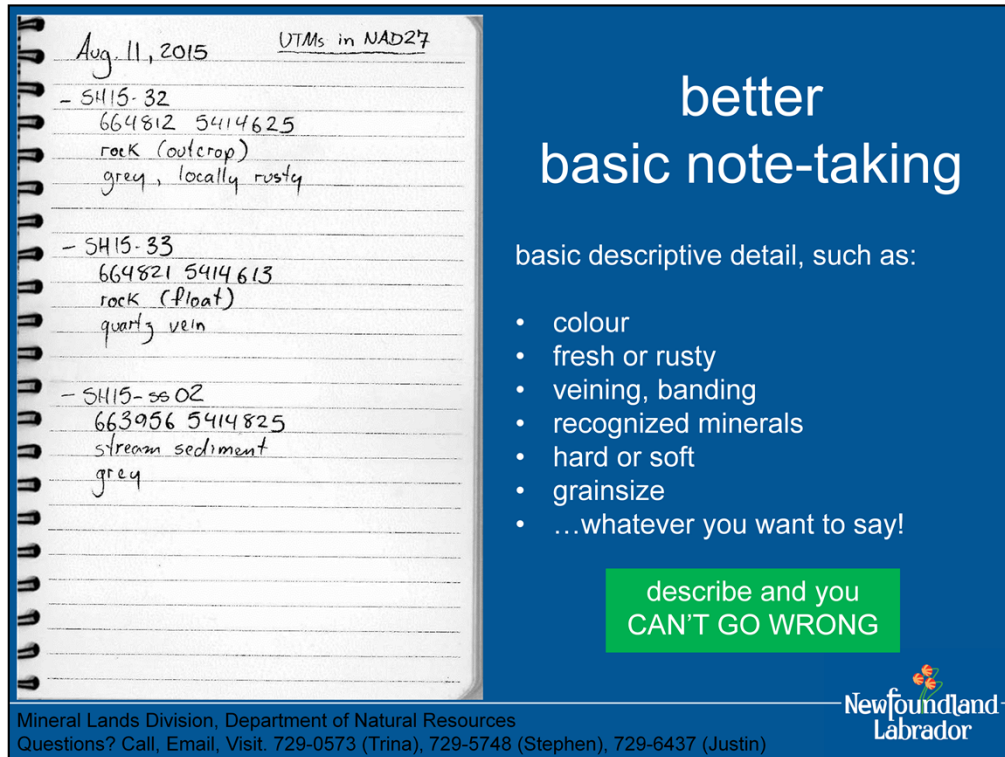 Aug. 11, 2015
UTMs in NAD27
- SH15-32
664812 5414625
rock (outcrop)
grey, locally rusty
- SH15-33
664821 5414613
rock (float)
quartz vein
- SH15-ss02
663956 5414825
stream sediment
grey
better
basic note-taking
basic descriptive detail, such as:
• colour
• fresh or rusty
• veining, banding
• recognized minerals
• hard or soft
• grainsize
• …whatever you want to say!
describe and you
CAN'T GO WRONG
Mineral Lands Division, Department of Natural Resources
Questions? Call, Email, Visit. 729-0573 (Trina), 729-5748 (Stephen), 729-6437 (Justin)
Newfoundland
Labrador